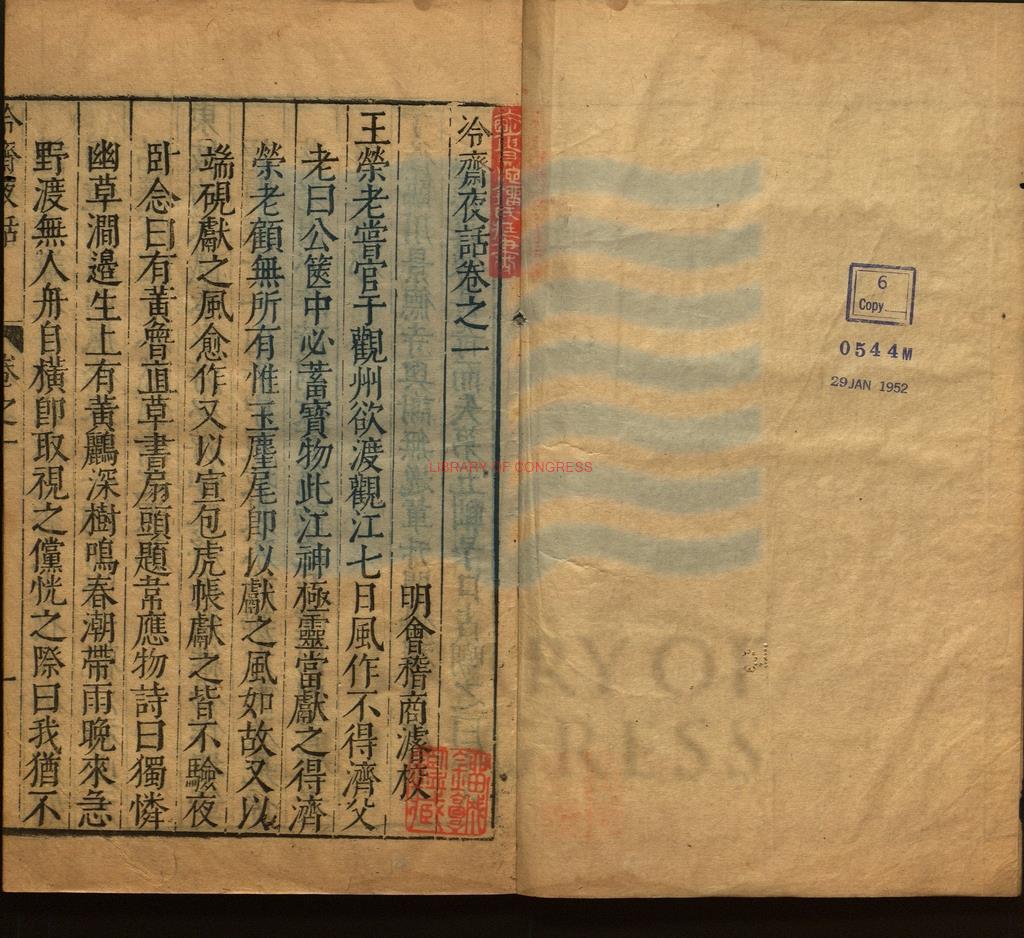 冷齋夜話卷之一
明會稽商濬校
王榮老嘗官于觀州欲渡觀江七日風作不得濟父
老曰公篋中必蓄寳物此江神極靈當獻之得濟
榮老顧無所有惟玉麈尾即以獻之風如故又以
端硯獻之風愈作又以宣包虎帳獻之皆不驗夜
卧念曰有黃魯直草書扇頭題韋應物詩曰獨憐
幽草澗邉生上有黃鸝深樹鳴春潮帶雨晚來急
野渡無人舟自橫即取視之儻恍之際曰我猶不
冷齋夜話
卷之一
一
LIBRARY OF CONGRESS
6
Copy
0544M
29 JAN 1952